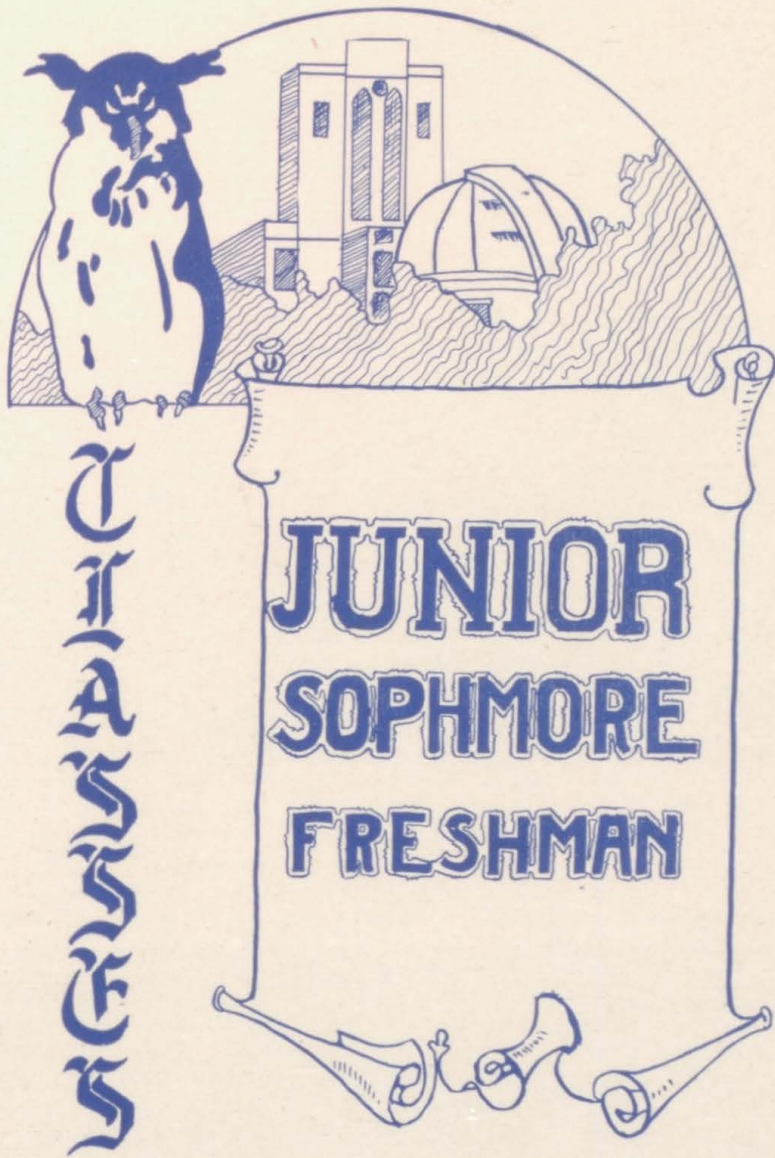 CLASSES
JUNIOR
SOPHMORE
FRESHMAN